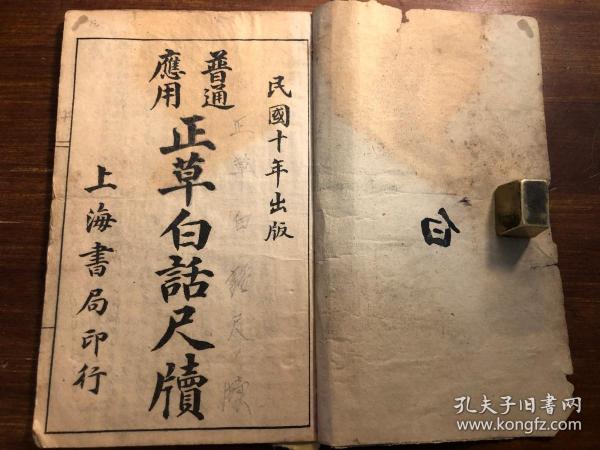 民國十年出版
普通
應用
正草白話尺牘
上海書局印行
正草白話尺牘
白
孔夫子旧书网
www.kongfz.com